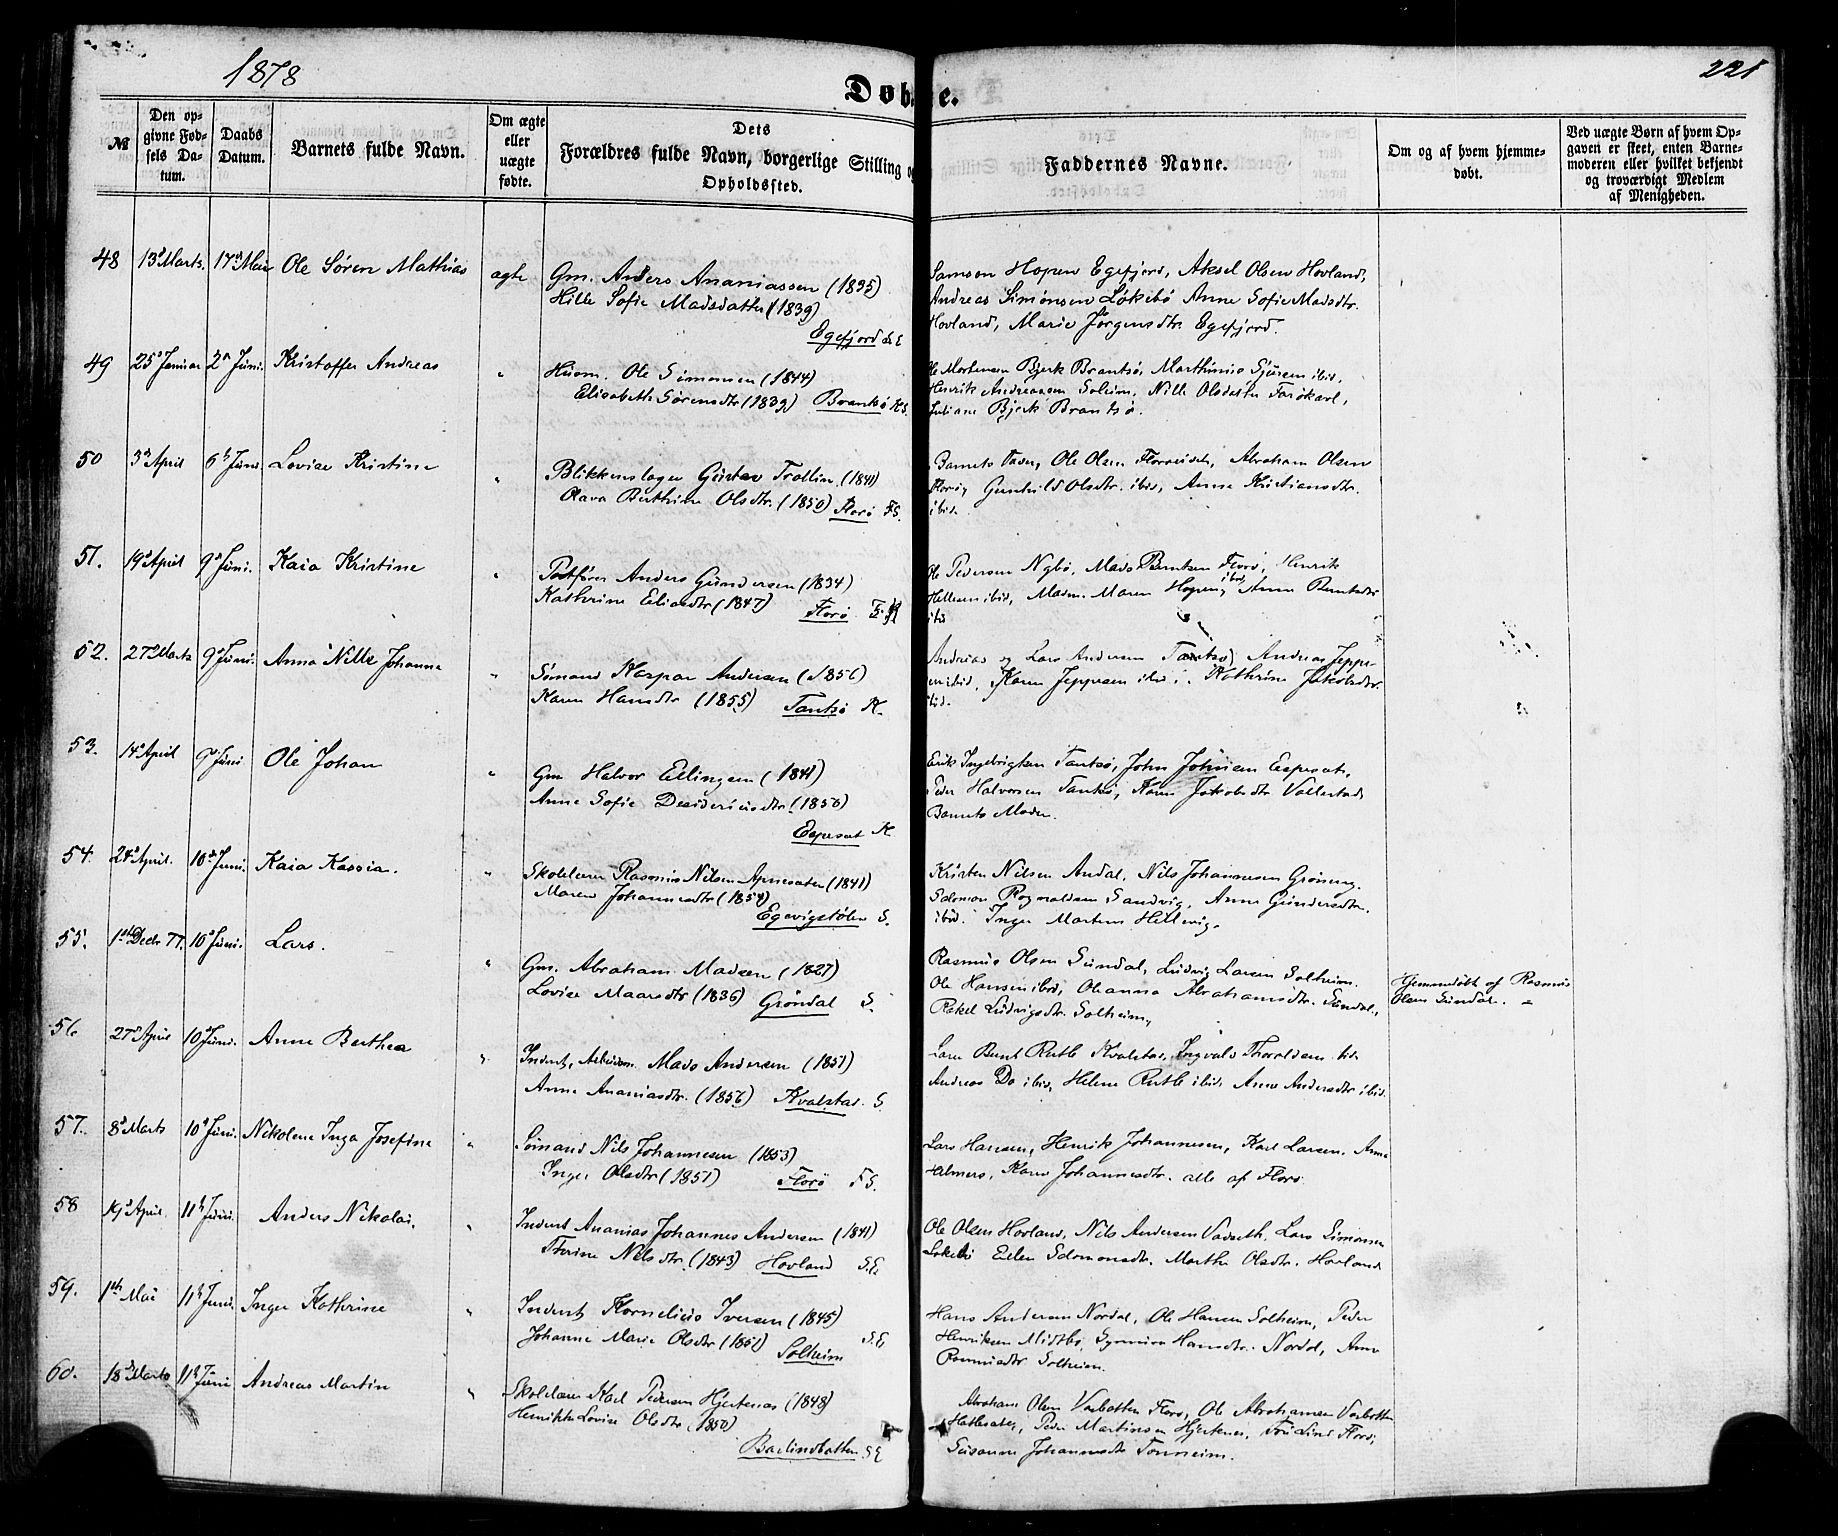 1878
221
Døbte.
№
Den opgivne Fødsels Datum.
Daabs Datum.
Barnets fulde Navn.
Om ægte eller uægte fødte.
Dets Forældres fulde Navn, borgerlige Stilling og Opholdssted.
Faddernes Navne.
Om og af hvem hjemmedøbt.
Ved uægte Børn af hvem Opgaven er skeet, enten Barnemoderen eller hvilket bekjendt og troværdigt Medlem af Menigheden.
48 13de Marts. 17de Mai Ole Sören Mathias ægte
Gm. Anders Ananiassen (1835)
Hille Sofie Madsdatter (1839)
Egefjord
Samson Hopen Egefjord, Aksel Olsen Hovland,
Andreas Simonsen Løkebø Anne Sofie Madsdtr.
Hovland, Marie Jørgensdtr. Egefjord.
49 25de Januar 2n Juni. Kristoffer Andreas "
Husm. Ole Simonsen (1844)
Elisabeth Sørensdtr (1839) Brantsø
Mortensen Bjerk Brantsø, Marthinus ibid,
Henrik Andreassen Solheim, Nille Olsdatter
Juliane Bjerk Brantsø.
50 3die April 6te Juni Lovise Kristine "
Blikkenslager Gustav Trollin (1841)
Olava Bertine Olsdtr. (1850) Florø F.S.
Barnets Fader, Ole Olsen Abraham Olsen
Florø, Gunhild Olsdtr. ibid, Anne Kristiansdtr.
ibid.
51. 19de April 9de Juni. Kaia Kristine "
Postfører Anders Gundersen (1834)
Kathrine Eliasdtr (1847) Florø
Ole Pedersen Nybø, Mads Berntsen Florø, Henrik
Hellesen ibid, Madm. Maren Hopen ibid, Anne Berntsdtr
ibid
52. 27de Marts 9de Juni. Anna Nille Johanne "
Sömand Kaspar Andersen (1856)
Karen Hansdtr (1855) Tansø K.
Andreas og Lars Andersen Tansø, Andreas Jeppesen
ibid, Karen Jeppesen ibid, Kathrine Jakobsdtr
ibid.
53. 14de April 9de Juni Ole Johan "
Gm Halvor Ellingsen (1841)
Anne Sofie Desideriusdtr. (1850)
Espeset K.
Erik Ingebrigtsen Tansø, John Johnsen Espeset,
Peder Halvorsen Tansø, Karen Jakobsdtr Vallestad
Barnets Moder.
54. 24de April. 10de Juni. Kaia Kassia. "
Skolelærer Rasmus Nilsen Apneseter (1841)
Maren Johannesdtr (1854)
Egevigstølen S.
Kristen Nilsen Andal, Nils Johannesen Grøneng.
Salomon Rognaldsen Sandvig, Anne Gundersdtr.
ibid. Inger Martens Hellevig.
55. 1ste Decbr 77. 10de Juni. Lars. "
Gm. Abraham Madsen (1827)
Lovise Maarsdtr (1836) Grøndal S.
Rasmus Olsen Sundal, Ludvig Larsen Solheim.
Ole Hansen ibid, Olianna Abrahamsdtr. Sundal,
Rakel Ludvigsdtr. Solheim,
Hjemmedøbt af Rasmus
Olsen Sundal. –
56 27de April 10de Juni. Anne Berthea "
Inderst, Arbeidsm. Mads Andersen (1851)
Anne Ananiasdtr. (1856) Kvalstad. S.
Lars Bernt Rutle Kvalstad, Ingvald Thoraldsen ibid
Andreas Do ibid, Helene Rutle ibid Anne Andersdtr ibid.
57. 8de Marts 10de Juni. Nikoline Inga Josefine "
Sömand Nils Johannesen (1853)
Inger Olsdtr (1851) Florø F S.
Lars Hansen, Henrik Johannesen, Karl Larsen. Anne
Helmers, Karen Johannesdtr. alle af Florø.
58 19de April. 11te Juni. Anders Nikolai. "
Inderst Ananias Johannes Andersen (1841)
Therine Nilsdtr. (1843) Hovland S.E.
Ole Olsen Hovland, Nils Andersen Vadseth, Lars Simonsen
Løkebø Ellen Salomonsdtr. Marthe Olsdtr. Hovland
59. 1ste Mai 11te Juni. Inger Kathrine "
Inderst Kornelius Iversen (1845)
Johanne Marie Olsdtr (1851) Solheim S.E
Hans Andersen Nordal, Ole Hansen Solheim, Peder
Henriksen Midtbø, Synneva Hansdtr. Nordal, Anne
Rasmusdtr Solheim.
60. 18de Marts 11te Juni Andreas Martin "
Skolelærer Karl Pedersen Hjertenes (1848)
Henrikke Lovise Olsdtr. (1850)
Barlindbotten S E
Abraham Olsen Vasbotten Florø, Ole Abrahamsen Vasbotten
Peder Martinsen Hjertenes, Florø,
Susanne Johannesdtr Tonheim.